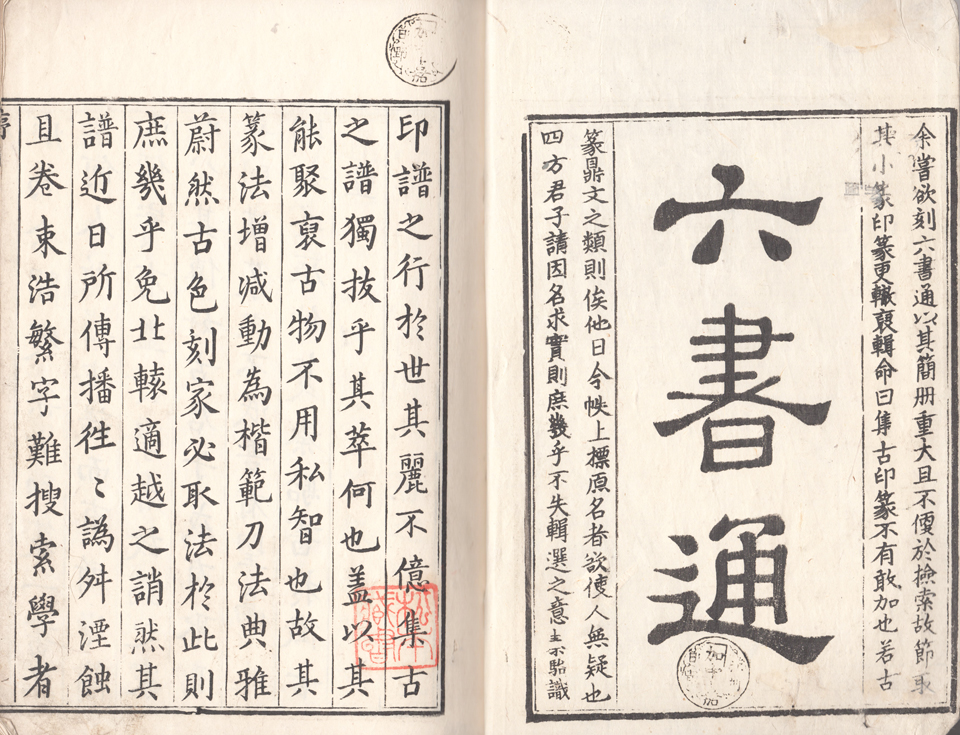 余嘗欲刻六書通以其簡册重大且不便於檢索故節取
其小篆印篆更轍裒輯命曰集古印篆不有敢加也若古
六書通
篆鼎文之類則俟他日今帙上標原名者欲使人無疑也
四方君子請因名求實則庶幾乎不失輯選之意
印譜之行於世其麗不億集古
之譜獨抜乎其萃何也盖以其
能聚裒古物不用私智也故其
篆法增减動為楷範刀法典雅
蔚然古色刻家必取法於此則
庶幾乎免北轅適越之誚然其
譜近日所傳播徃〻譌舛湮蝕
且卷束浩繁字難搜索學者